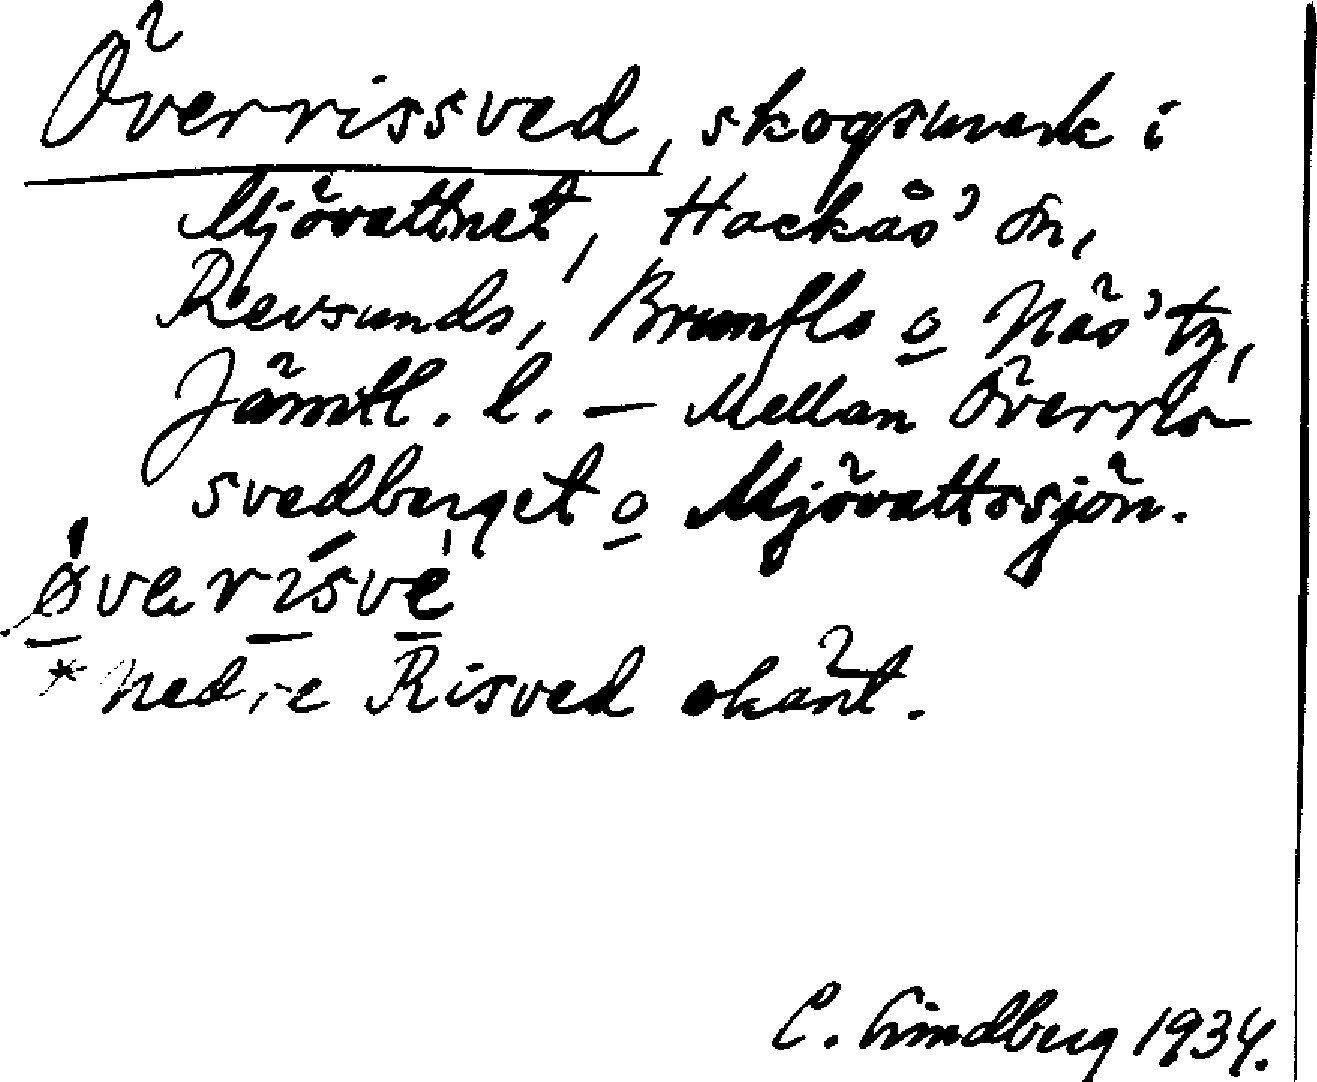 Överrissved, skogsmark i
Mjövattnet, Hackås' sn,
Revsunds, Brunflo o Näs' tg,
Jämtl. l. — Mellan Överris-
svedberget o Mjövattssjön.
øverisve
* Nedre Risved okänt.
C. Lindberg 1934.